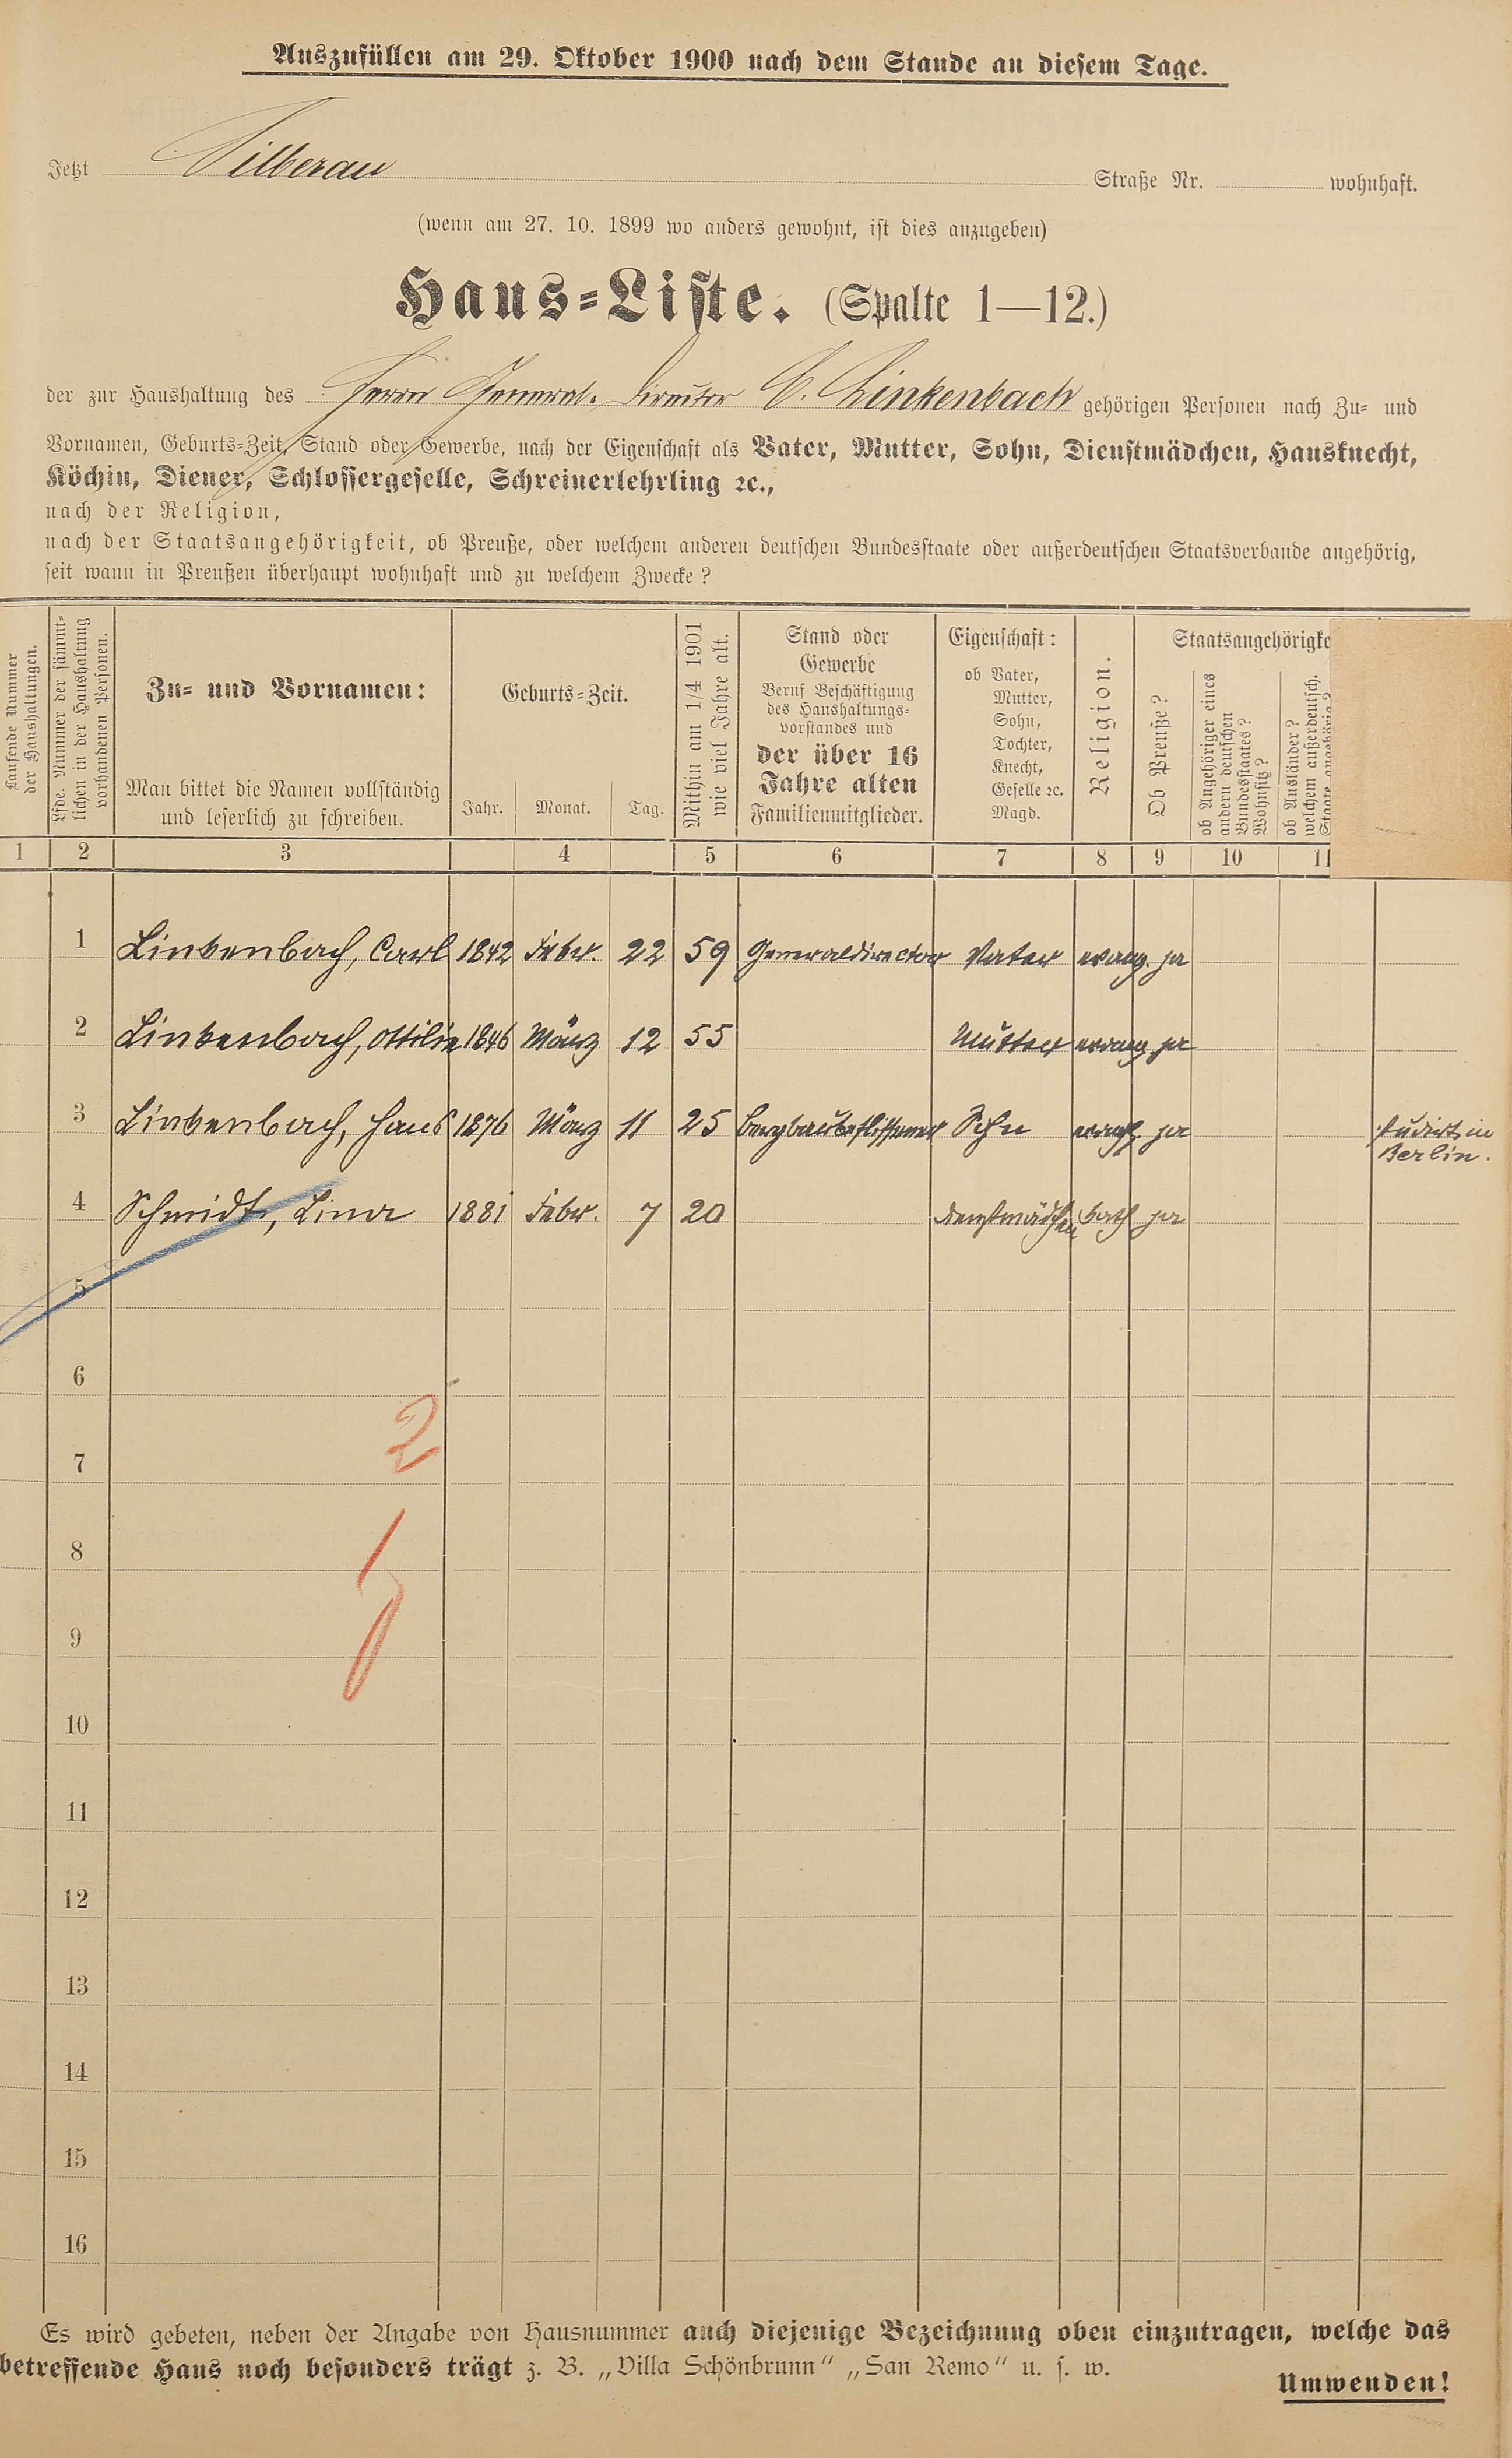 Auszufüllen am 29. Oktober 1900 nach dem Stande an diesem Tage.
Jetzt Silberau Straße Nr. wohnhaft.
(wenn am 27. 10. 1899 wo anders gewohnt, ist dies anzugeben)
Haus-Liste. (Spalte 1—12.)
der zur Haushaltung des Herrn General-Director C. Linkenbach gehörigen Personen nach Zu- und
Vornamen, Geburts-Zeit, Stand oder Gewerbe, nach der Eigenschaft als Vater, Mutter, Sohn, Dienstmädchen, Hausknecht,
Köchin, Diener, Schlossergeselle, Schreinerlehrling ꝛc.,
nach der Religion,
nach der Staatsangehörigkeit, ob Preuße, oder welchem anderen deutschen Bundesstaate oder außerdeutschen Staatsverbande angehörig,
seit wann in Preußen überhaupt wohnhaft und zu welchem Zwecke?
Laufende Nummer
der Haushaltungen.
Lfde. Nummer der sämmt-
lichen in der Haushaltung
vorhandenen Personen.
Zu- und Vornamen:
Man bittet die Namen vollständig
und leserlich zu schreiben.
Geburts-Zeit.
Jahr. Monat. Tag.
Mithin am 1/4 1901
wie viel Jahre alt.
Stand oder
Gewerbe
Beruf Beschäftigung
des Haushaltungs-
vorstandes und
der über 16
Jahre alten
Familienmitglieder.
Eigenschaft:
ob Vater,
Mutter,
Sohn,
Tochter,
Knecht,
Geselle ꝛc.
Magd.
Religion.
Staatsangehörigke
Ob Preuße?
ob Angehöriger eines
andern deutschen
Bundesstaates?
Wohnsitz?
ob Ausländer?
welchem außerdeutsch.
Staate angehörig?
1 2 3 4 5 6 7 8 9 10 11
1 Linkenbach, Carl 1842 Febr. 22 59 Generaldirector Vater evang. ja
2 Linkenbach, Ottilie 1846 März 12 55 Mutter evang ja
3 Linkenbach, Hans 1876 März 11 25 Bergbaubeflissener Sohn evang ja studirt in
Berlin.
4 Schmidt, Lina 1881 Febr. 7 20 Dienstmädchen kath ja
5
6
2
7
8
9
10
11
12
13
14
15
16
Es wird gebeten, neben der Angabe von Hausnummer auch diejenige Bezeichnung oben einzutragen, welche das
betreffende Haus noch besonders trägt z. B. „Villa Schönbrunn“ „San Remo“ u. s. w.
Umwenden!